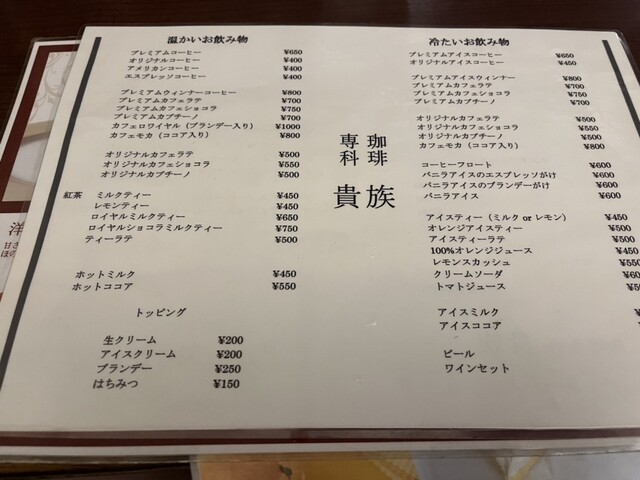 温かいお飲み物
プレミアムコーヒー ¥650
オリジナルコーヒー ¥400
アメリカンコーヒー ¥400
エスプレッソコーヒー ¥400
プレミアムウィンナーコーヒー ¥800
プレミアムカフェラテ ¥700
プレミアムカフェショコラ ¥750
プレミアムカプチーノ ¥700
カフェロワイヤル（ブランデー入り） ¥1000
カフェモカ（ココア入り） ¥800
オリジナルカフェラテ ¥500
オリジナルカフェショコラ ¥550
オリジナルカプチーノ ¥500
紅茶 ミルクティー ¥450
レモンティー ¥450
ロイヤルミルクティー ¥650
ロイヤルショコラミルクティー ¥750
ティーラテ ¥500
ホットミルク ¥450
ホットココア ¥550
トッピング
生クリーム ¥200
アイスクリーム ¥200
ブランデー ¥250
はちみつ ¥150
珈琲
専科
貴族
冷たいお飲み物
プレミアムアイスコーヒー ¥650
オリジナルアイスコーヒー ¥450
プレミアムアイスウィンナー ¥800
プレミアムカフェラテ ¥700
プレミアムカフェショコラ ¥750
プレミアムカプチーノ ¥700
オリジナルカフェラテ ¥500
オリジナルカフェショコラ ¥550
オリジナルカプチーノ ¥500
カフェモカ（ココア入り） ¥800
コーヒーフロート ¥600
バニラアイスのエスプレッソがけ ¥600
バニラアイスのブランデーがけ ¥600
バニラアイス ¥600
アイスティー（ミルク or レモン） ¥450
オレンジアイスティー ¥500
アイスティーラテ ¥500
100%オレンジジュース ¥450
レモンスカッシュ
クリームソーダ
トマトジュース
アイスミルク
アイスココア
ビール
ワインセット
洋
甘さ
ほの